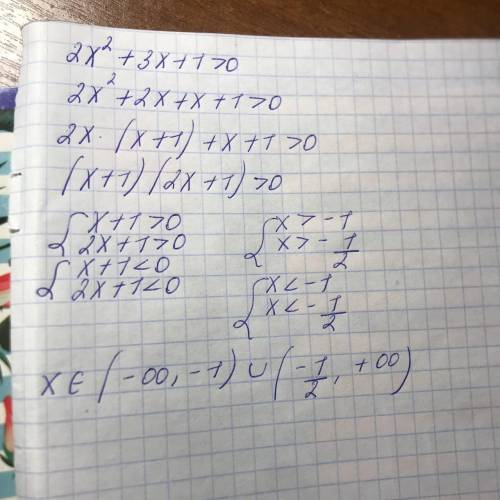 2x² + 3x + 1 > 0
2x² + 2x + x + 1 > 0
2x · (x+1) + x + 1 > 0
(x+1) (2x+1) > 0
{ x+1 > 0
2x+1 > 0
{ x+1 < 0
2x+1 < 0
{ x > -1
x > - 1/2
{ x < -1
x < - 1/2
x ∈ (-∞, -1) ∪ (-1/2, +∞)